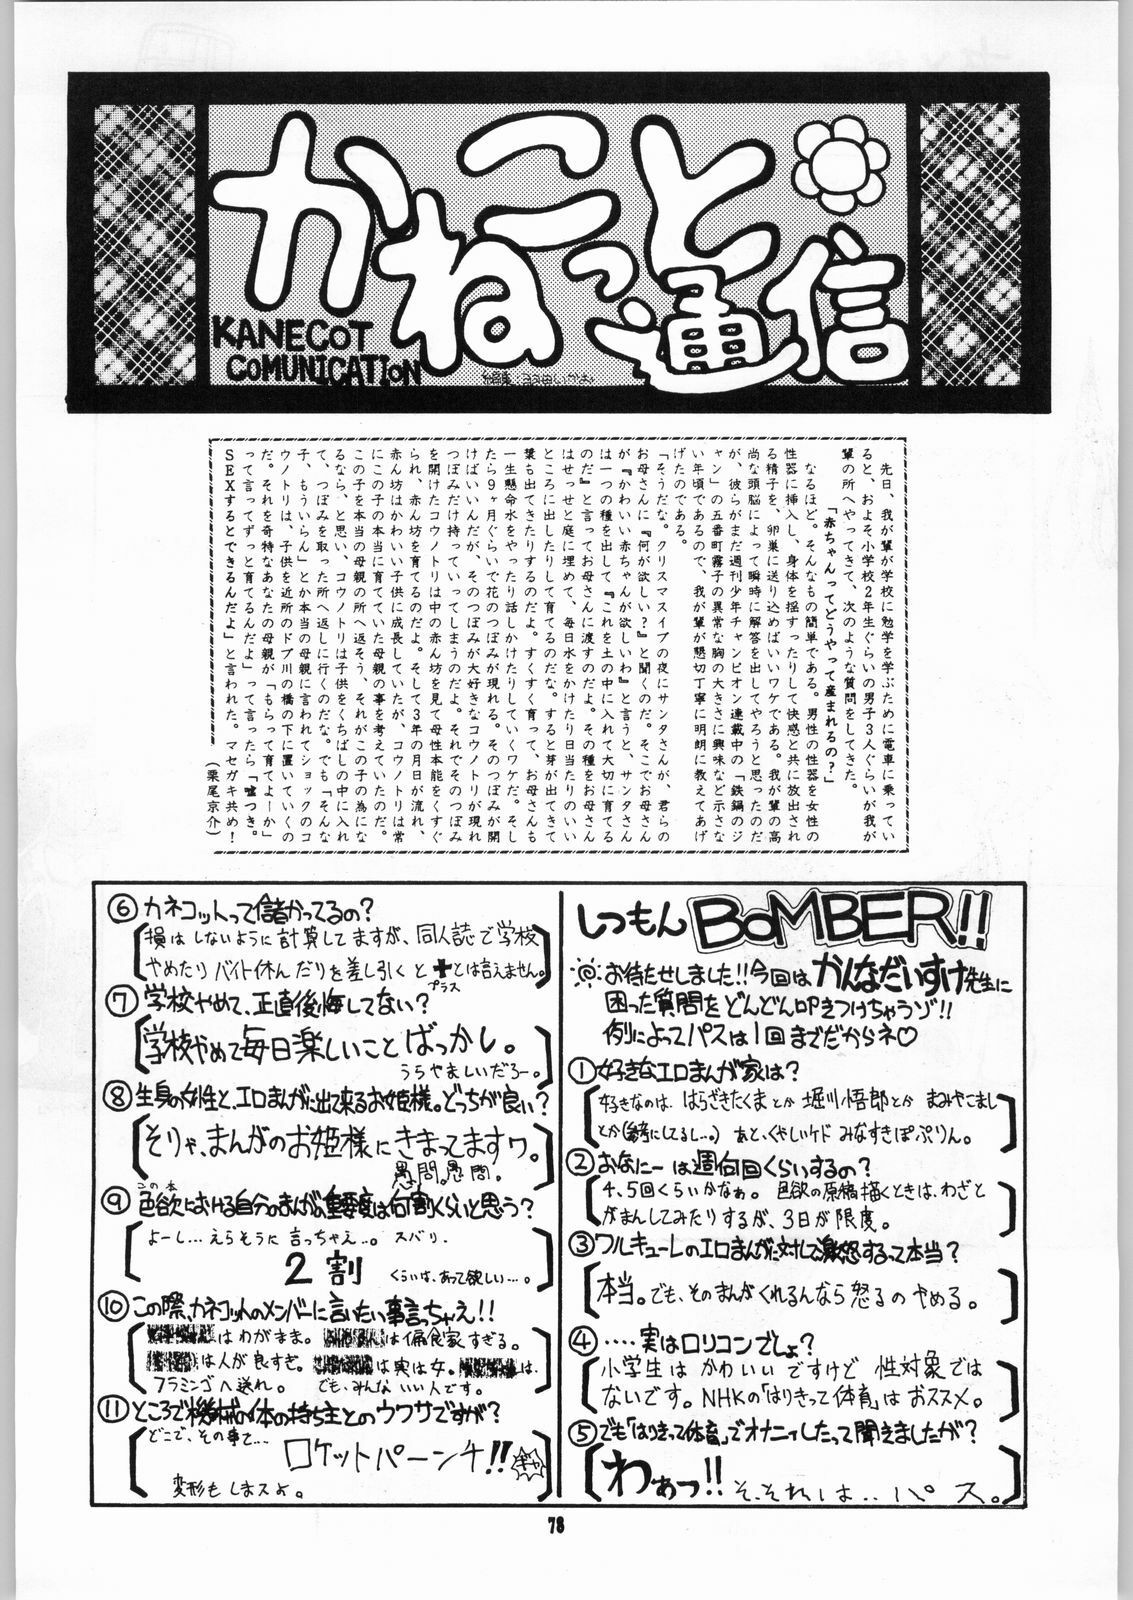 かねこっと通信
KANECOT
COMUNICATION
先日、我が輩が学校に勉学を学ぶために電車に乗ってい
ると、およそ小学校2年生ぐらいの男子3人ぐらいが我が
輩の所へやってきて、次のような質問をしてきた。
「赤ちゃんってどうやって産まれるの?」
なるほど。そんなもの簡単である。男性の性器を女性の
性器に挿入し、身体を揺すったりして快感と共に放出され
る精子を、卵巣に送り込めばいいワケである。我が輩の高
尚な頭脳によって瞬時に解答を出してやろうと思ったのだ
が、彼らがまだ週刊少年チャンピオン連載中の「鉄鍋のジ
ャン」の五番町霧子の異常な胸の大きさに興味など示さな
い年頃であるので、我が輩が懇切丁寧に明朗に教えてあげ
げたのである。
「そうだな。クリスマスイブの夜にサンタさんが、君らの
お母さんに『何が欲しい?』と聞くのだ。そこでお母さん
が『かわいい赤ちゃんが欲しいわ』と言うと、サンタさん
は一つの種を出して、『これを土の中に入れて大切に育てる
のだ』と言ってお母さんに渡すのだよ。その種をお母さん
はせっせと庭に埋めて、毎日水をかけたり日当たりのいい
ところに出したりして育てるのだな。すると芽が出てきて
葉も出てきたりするのだよ。すくすく育って、お母さんも
一生懸命水をやったり話しかけたりしていくワケだ。そし
たら9ヶ月ぐらいで花のつぼみが現れる。そのつぼみが開
けばいいんだが、そのつぼみが大好きなコウノトリが現れ
つぼみだけ持っていってしまうのだよ。それでそのつぼみ
を開けたコウノトリは中の赤ん坊を見て母性本能をくすぐ
られ、赤ん坊を育てるのだよ。そして3年の月日が流れ、
赤ん坊はかわいい子供に成長していたが、コウノトリは常
にこの子の本当に育てていた母親の事を考えていたのだ。
この子を本当の母親の所へ返そう、それがこの子の為にな
るなら、と思い、コウノトリは子供をくちばしの中に入れ
て、つぼみを取った所へ返しに行くのだな。でも「そんな
子、もういらん」とか本当の母親に言われてショックのコ
ウノトリは、子供を近所のドブ川の橋の下に置いていくの
だ。それを奇特なあなたの母親が「もらって育てよーか」
って言ってずっと育てるんだよ」って言ったら「嘘つき。
SEXするとできるんだよ」と言われた。マセガキ共め!
(栗尾京介)
しつもんBOMBER!!
お待たせしました!!今回はかんなだいすけ先生に
困った質問をどんどん叩きつけちゃうゾ!!
例によってパスは1回までだからネ♡
①好きなエロまんが家は?
好きなのは、はらざきたくまとか 堀川悟郎とか まみやこまし
とか(参考にしてるし…) あと、くやしいケド みなすきぽぷりん。
②おなにーは週何回くらいするの?
4、5回くらいかなぁ。 色欲の原稿描くときは、わざと
がまんしてみたりするが、3日が限度。
③ワルキューレのエロまんがに対して激怒するって本当?
本当。でも、そのまんがくれるんなら怒るのやめる。
⑥カネコットって儲かってるの?
損はしないように計算してますが、同人誌で学校
やめたりバイト休んだりを差し引くと+とは言えません。
プラス
⑦学校やめて、正直後悔してない?
学校やめて毎日楽しいことばっかし。
うらやましいだろー。
⑧生身の女性と、エロまんがに出て来るお姫様。どっちが良い?
そりゃ、まんがのお姫様にきまってますワ。
愚問。愚問。
この本
⑨色欲における自分のまんがの重要度は何割くらいと思う?
よーし…えらそうに言っちゃえ…。ズバリ.
2割 くらいは、あって欲しい…。
⑩この際、カネコットのメンバーに言いたい事言っちゃえ!!
はわがまま。 は偏食家すぎる。
は人が良すぎ。 は実は女。 は、
フラミンゴへ送れ。 でも、みんないい人です。
⑪ところで機械の体の持ち主とのウワサですが?
どこで、その事を…
ロケットパーンチ!!
変形もしまスよ。
78